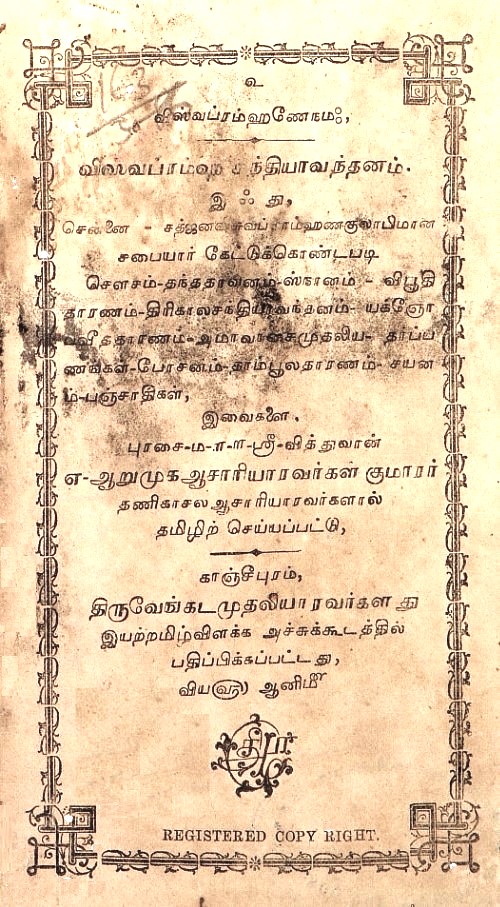 உ
விஸ்வப்ரம்ஹணேநமஃ,
விஸ்வப்ரம்ஹ சந்தியாவந்தனம்.
இஃது,
சென்னை - சத்ஜன விஸ்வப்ராம்ஹணகுலாபிமான
சபையார் கேட்டுக்கொண்டபடி
சௌசம்-தந்ததாவனம்-ஸ்நானம் - விபூதி
தாரணம்-திரிகாலசந்தியாவந்தனம்- யக்ஞோ
பவீததாரணம்-அமாவாசைமுதலிய- தர்ப்ப
ணங்கள்-போசனம்-தாம்பூலதாரணம்- சயன
ம்-பஞ்சாதிகள்,
இவைகளை,
புரசை-ம-ள-ள-ஸ்ரீ-வித்துவான்
எ-ஆறுமுகஆசாரியாரவர்கள் குமாரர்
தணிகாசலஆசாரியாரவர்களால்
தமிழிற் செய்யப்பட்டு,
காஞ்சீபுரம்,
திருவேங்கடமுதலியாரவர்களது
இயற்றமிழ்விளக்க அச்சுக்கூடத்தில்
பதிப்பிக்கப்பட்டது,
வியளு ஆனிமீ
REGISTERED COPY RIGHT.